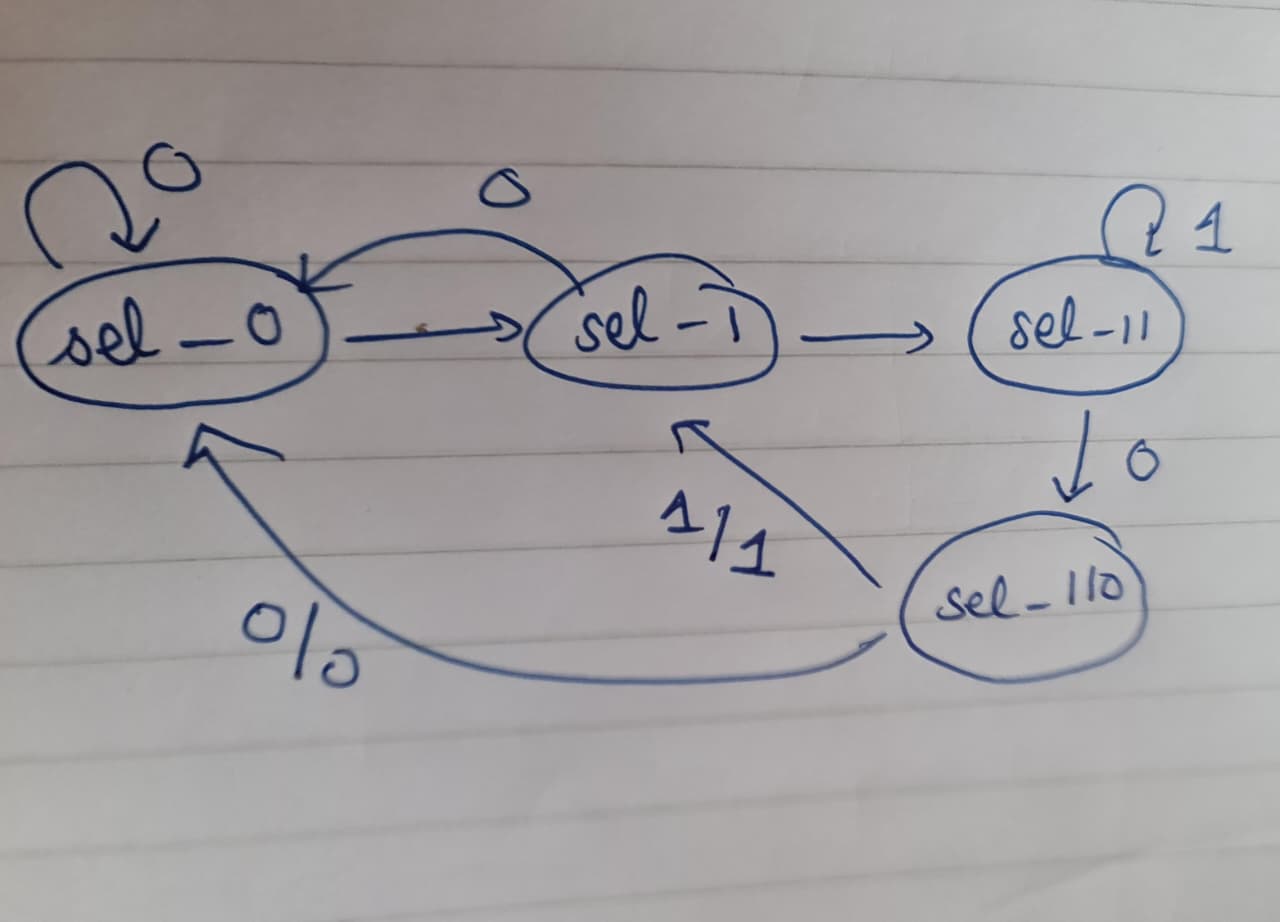 0
0
1
sel-0
sel-1
sel-11
0
1/1
sel-110
0/0